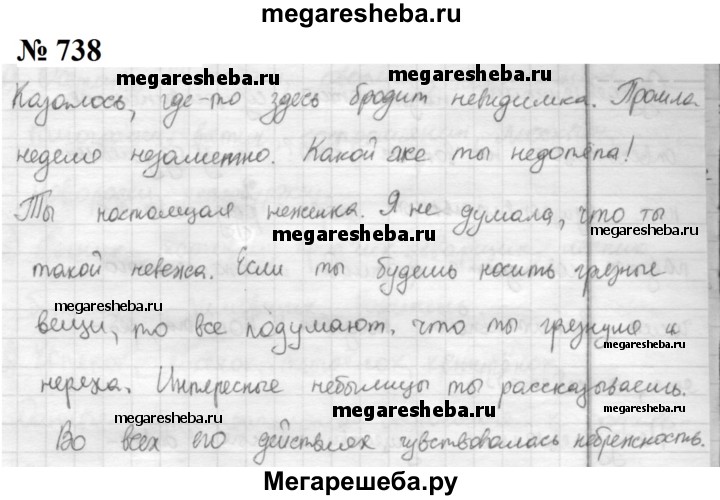 megaresheba.ru
№ 738
megaresheba.ru megaresheba.ru
Казалось, где-то здесь бродит невидимка. Прошла
неделя незаметно. Какой же ты недотёпа!
Ты настоящая неженка. Я не думала, что ты
megaresheba.ru megaresheba.ru
такой невежа. Если ты будешь носить грязные
megaresheba.ru
вещи, то все подумают, что ты грязнуля и
megaresheba.ru megaresheba.ru
неряха. Интересные небылицы ты рассказываешь.
megaresheba.ru megaresheba.ru megaresheba.ru
Во всех его действиях чувствовалась небрежность.
megaresheba.ru megaresheba.ru
Мегарешеба.ру